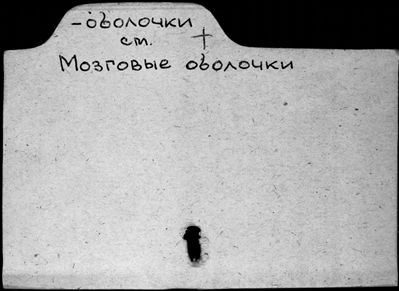 -оболочки
ст. †
Мозговые оболочки